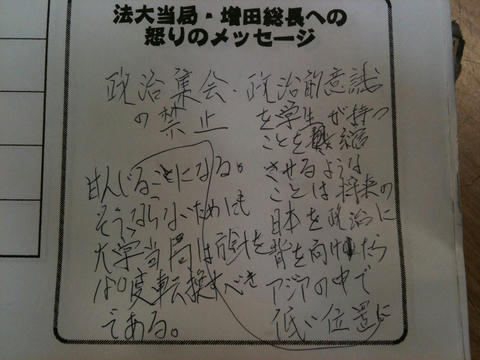 法大当局・増田総長への
怒りのメッセージ
政治集会・
の禁止
政治的意識
を学生が持つ
ことを
させるような
ことは将来の
日本を政治に
背を向け
アジアの中で
低い位置に
甘んじることになる。
そうならないためにも
大学当局は方針を
180度転換すべき
である。